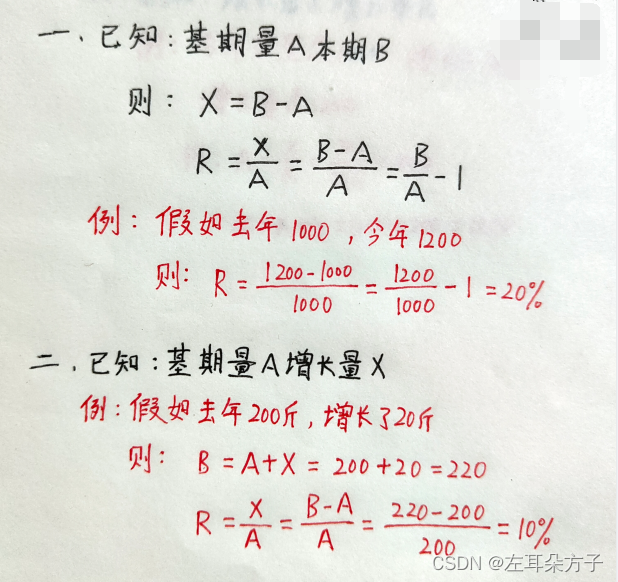 一、已知：基期量A本期B
则： X = B-A
R = X/A = B-A/A = B/A - 1
例：假如去年1000，今年1200
则： R = 1200-1000/1000 = 1200/1000 - 1 = 20%
二、已知：基期量A增长量X
例：假如去年200斤，增长了20斤
则： B = A+X = 200+20 = 220
R = X/A = B-A/A = 220-200/200 = 10%
CSDN @左耳朵方子